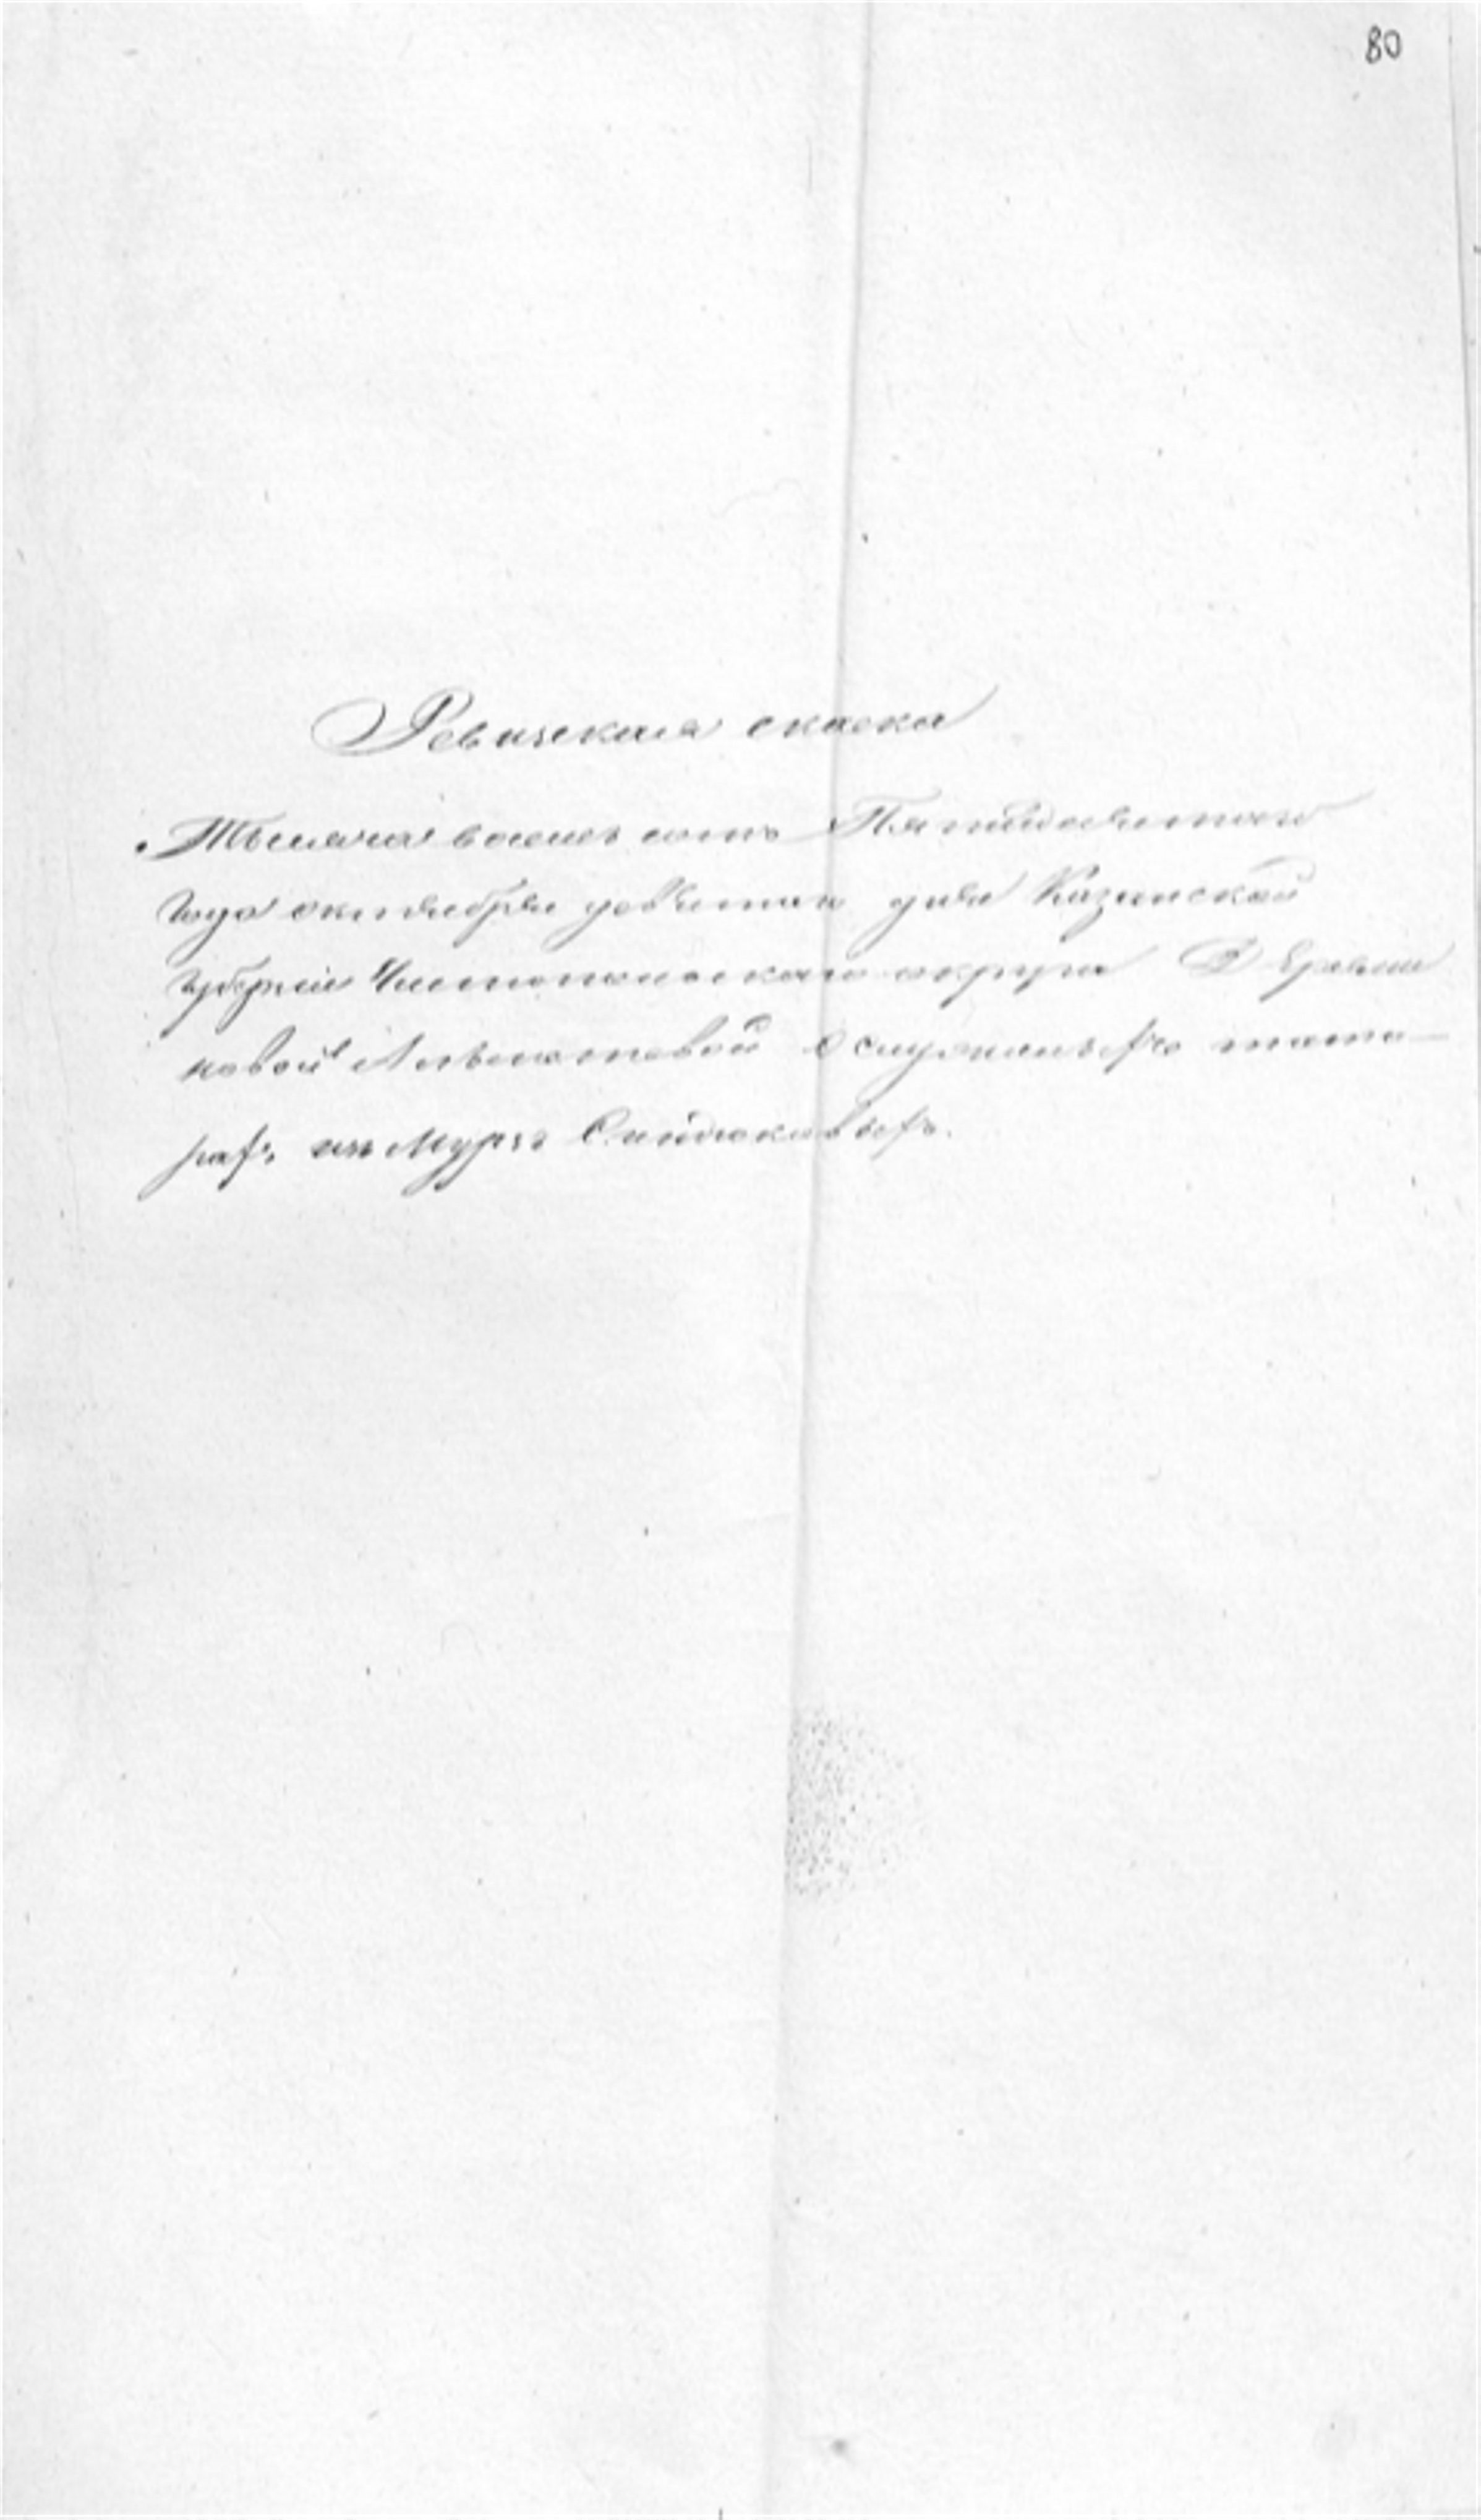 80
Ревизская сказка
Тысяча восемь сотъ Пятидесятаго
года октября девятаго дня Казанской
губернии Чистопольскаго округа Деревни
новой о служилыхъ тата-
рахъ изъ Мурзъ